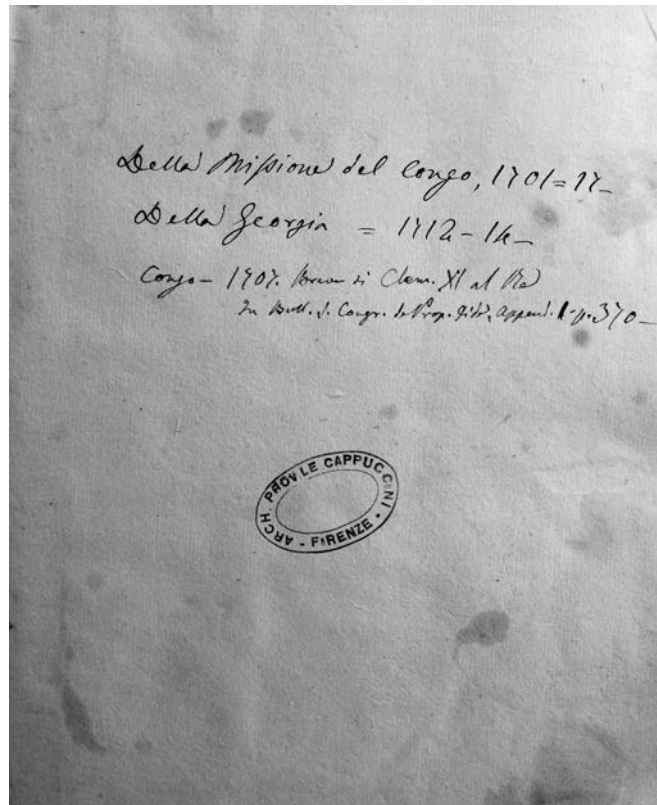 Della Missione del Congo, 1701=17–
Della Georgia = 1712–14–
Congo – 1707. Breve di Clem. XI al Re
In Bull. d. Congr. de Prop. Fide, Append. 1. p. 370–
ARCH. PROV.LE CAPPUCCINI - FIRENZE •